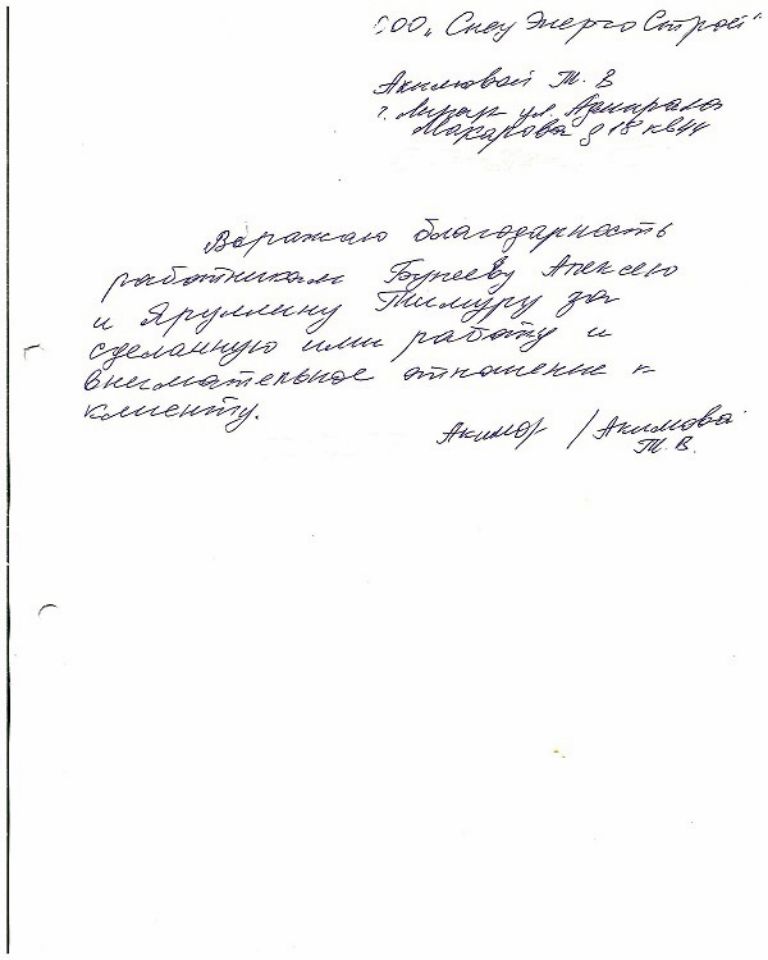 ООО „СпецЭнергоСтрой"
Акимовой Т. В
ул. Адмирала
Макарова д 18 кв 44
Выражаю благодарность
работникам Бунееву Алексею
и Яруллину Тимуру за
сделанную ими работу и
внимательное отношение к
клиенту.
Акимов / Акимова
Т. В.